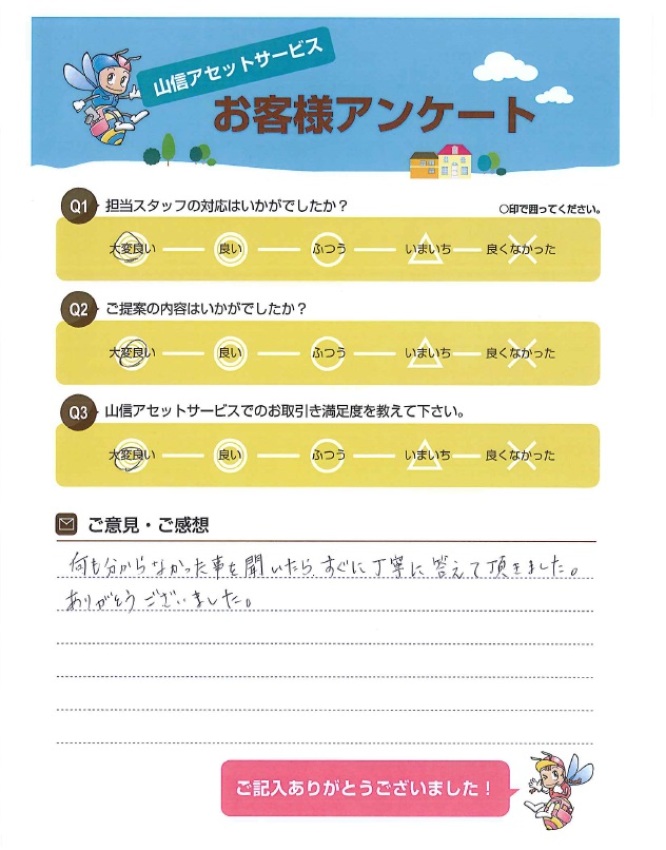 山信アセットサービス
お客様アンケート
Q1 担当スタッフの対応はいかがでしたか？ ○印で囲ってください。
大変良い 良い ふつう いまいち 良くなかった
Q2 ご提案の内容はいかがでしたか？
大変良い 良い ふつう いまいち 良くなかった
Q3 山信アセットサービスでのお取引き満足度を教えて下さい。
大変良い 良い ふつう いまいち 良くなかった
ご意見・ご感想
何も分からなかった事を聞いたら、すぐに丁寧に答えて頂きました。
ありがとうございました。
ご記入ありがとうございました！